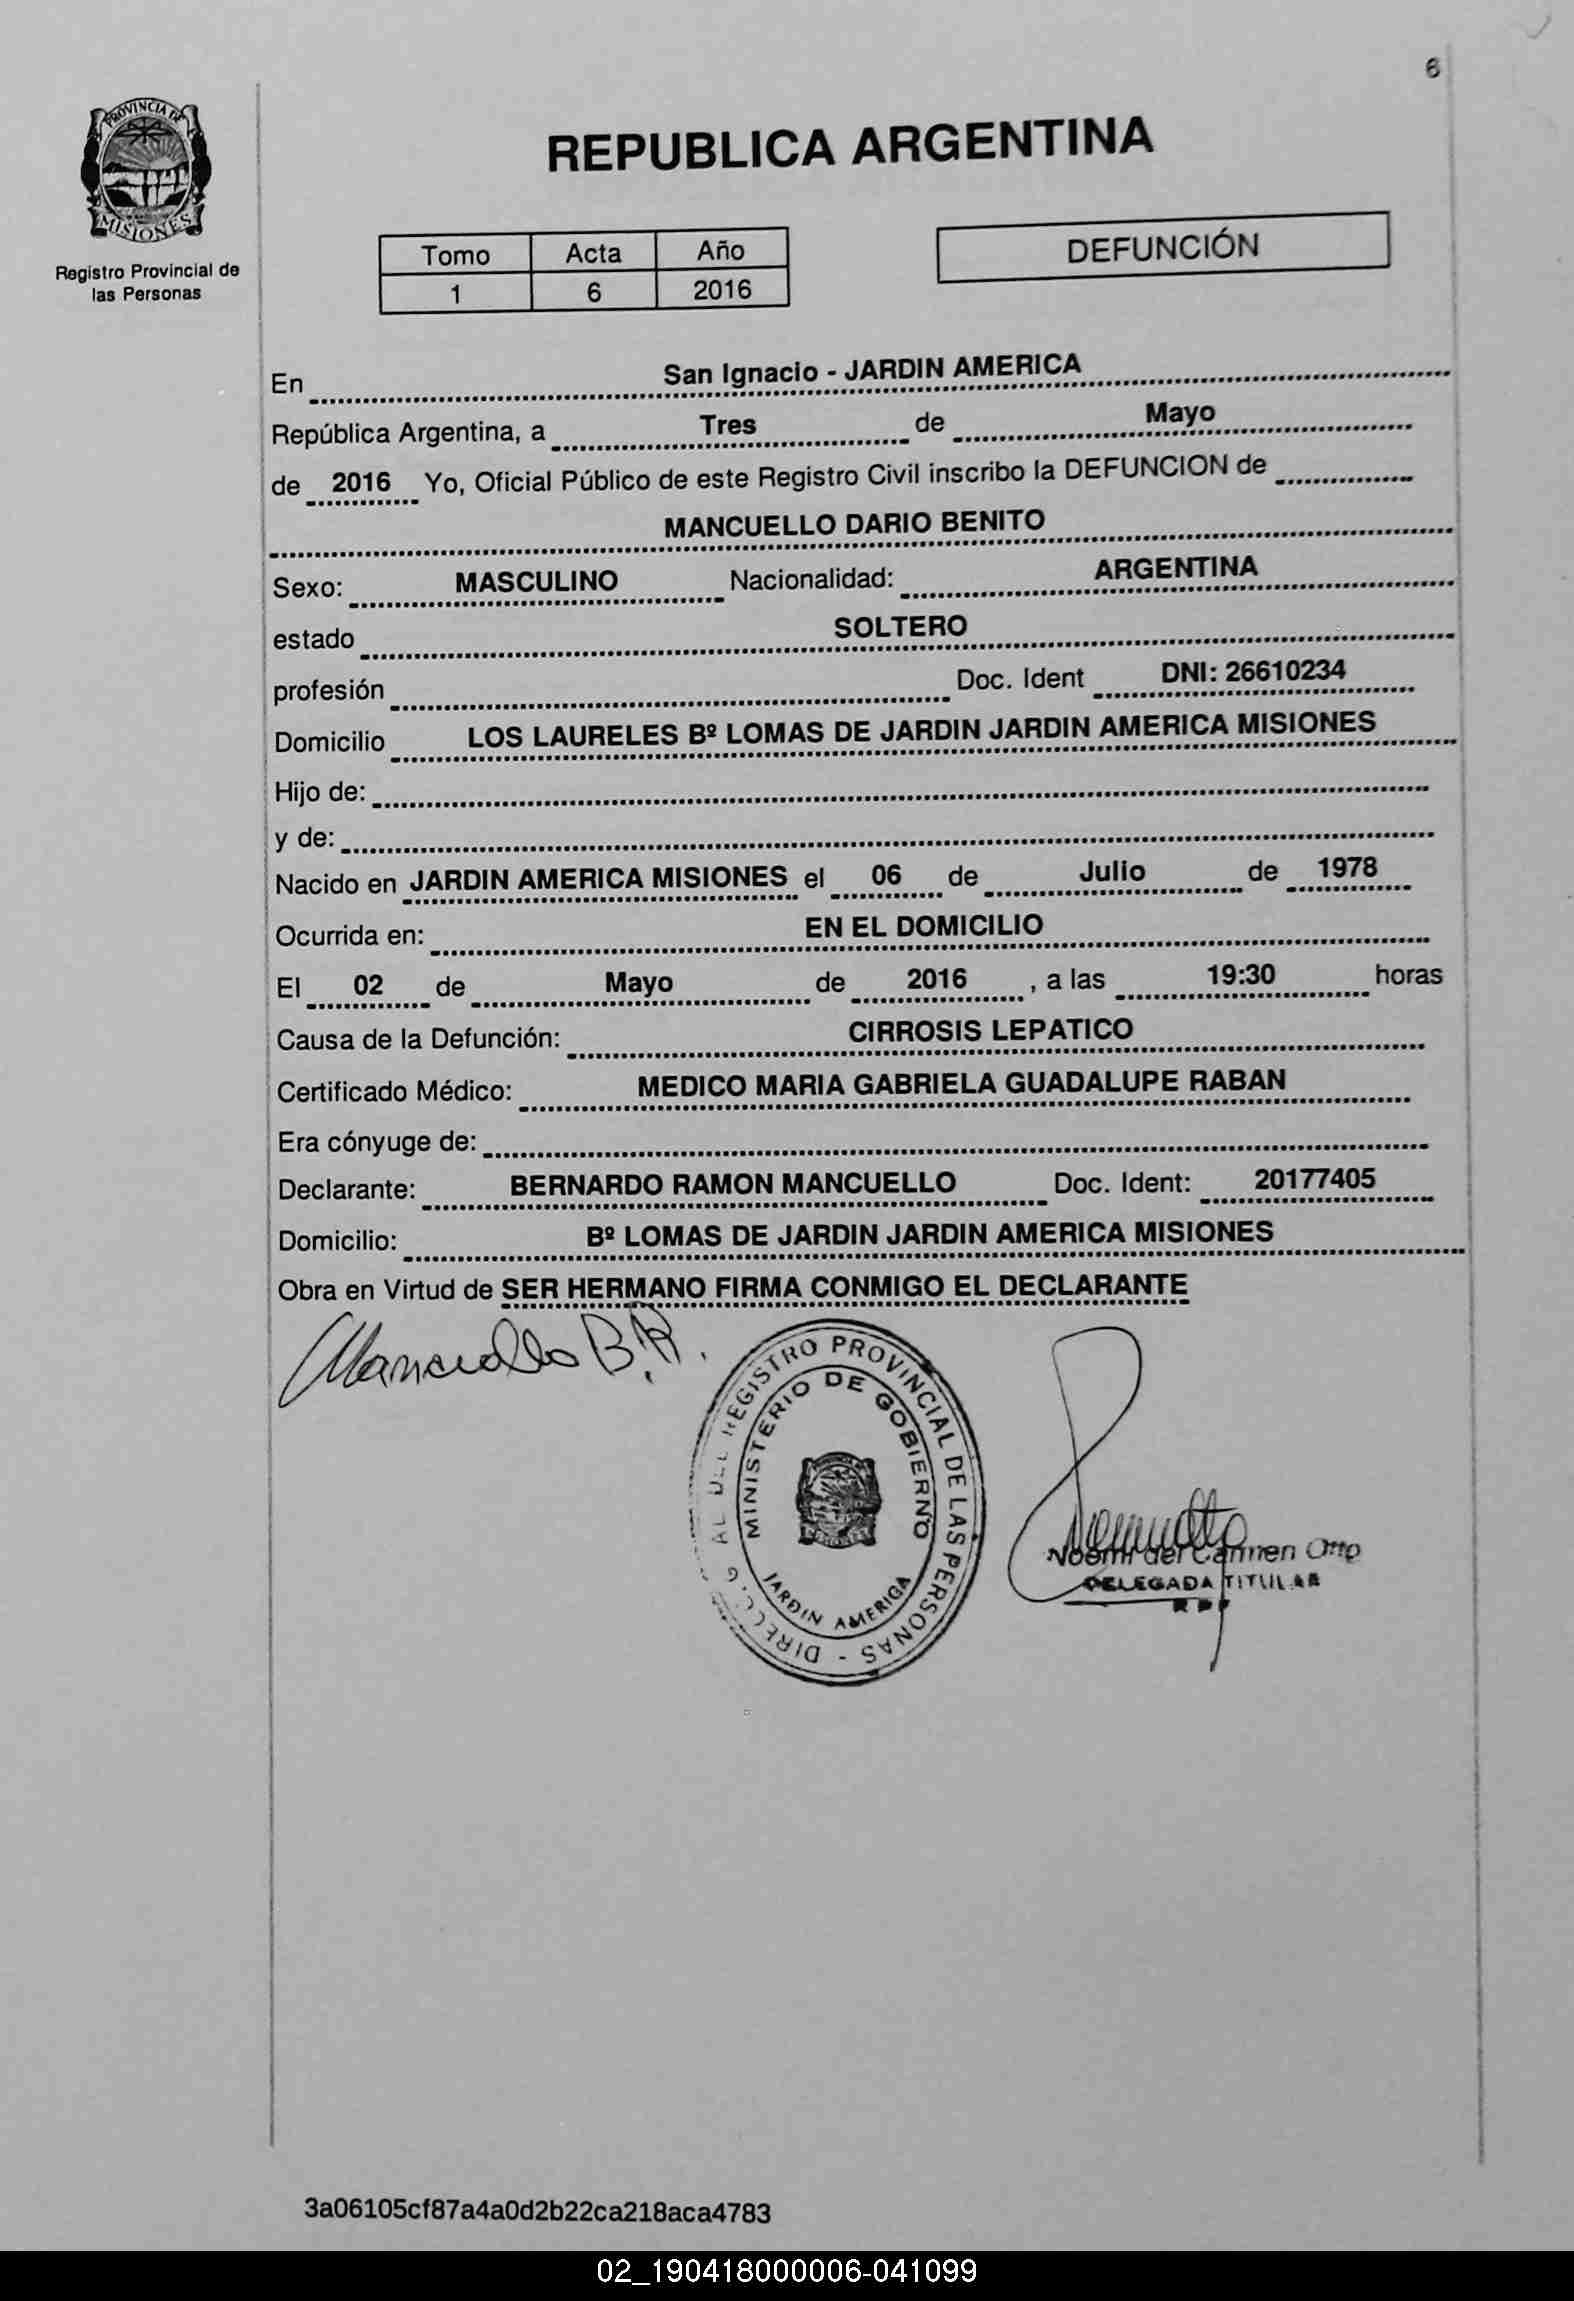 6
PROVINCIA DE
MISIONES
Registro Provincial de
las Personas
REPUBLICA ARGENTINA
Tomo Acta Año
1 6 2016
DEFUNCIÓN
En San Ignacio - JARDIN AMERICA
República Argentina, a Tres de Mayo
de 2016 Yo, Oficial Público de este Registro Civil inscribo la DEFUNCION de
MANCUELLO DARIO BENITO
Sexo: MASCULINO Nacionalidad: ARGENTINA
estado SOLTERO
profesión Doc. Ident DNI: 26610234
Domicilio LOS LAURELES Bº LOMAS DE JARDIN JARDIN AMERICA MISIONES
Hijo de:
y de:
Nacido en JARDIN AMERICA MISIONES el 06 de Julio de 1978
Ocurrida en: EN EL DOMICILIO
El 02 de Mayo de 2016 , a las 19:30 horas
Causa de la Defunción: CIRROSIS LEPATICO
Certificado Médico: MEDICO MARIA GABRIELA GUADALUPE RABAN
Era cónyuge de:
Declarante: BERNARDO RAMON MANCUELLO Doc. Ident: 20177405
Domicilio: Bº LOMAS DE JARDIN JARDIN AMERICA MISIONES
Obra en Virtud de SER HERMANO FIRMA CONMIGO EL DECLARANTE
Mancuello B.R.
REGISTRO PROVINCIAL DE LAS PERSONAS -
MINISTERIO DE GOBIERNO
JARDIN AMERICA
Noemi del Carmen Otto
DELEGADA TITULAR
3a06105cf87a4a0d2b22ca218aca4783
02_190418000006-041099